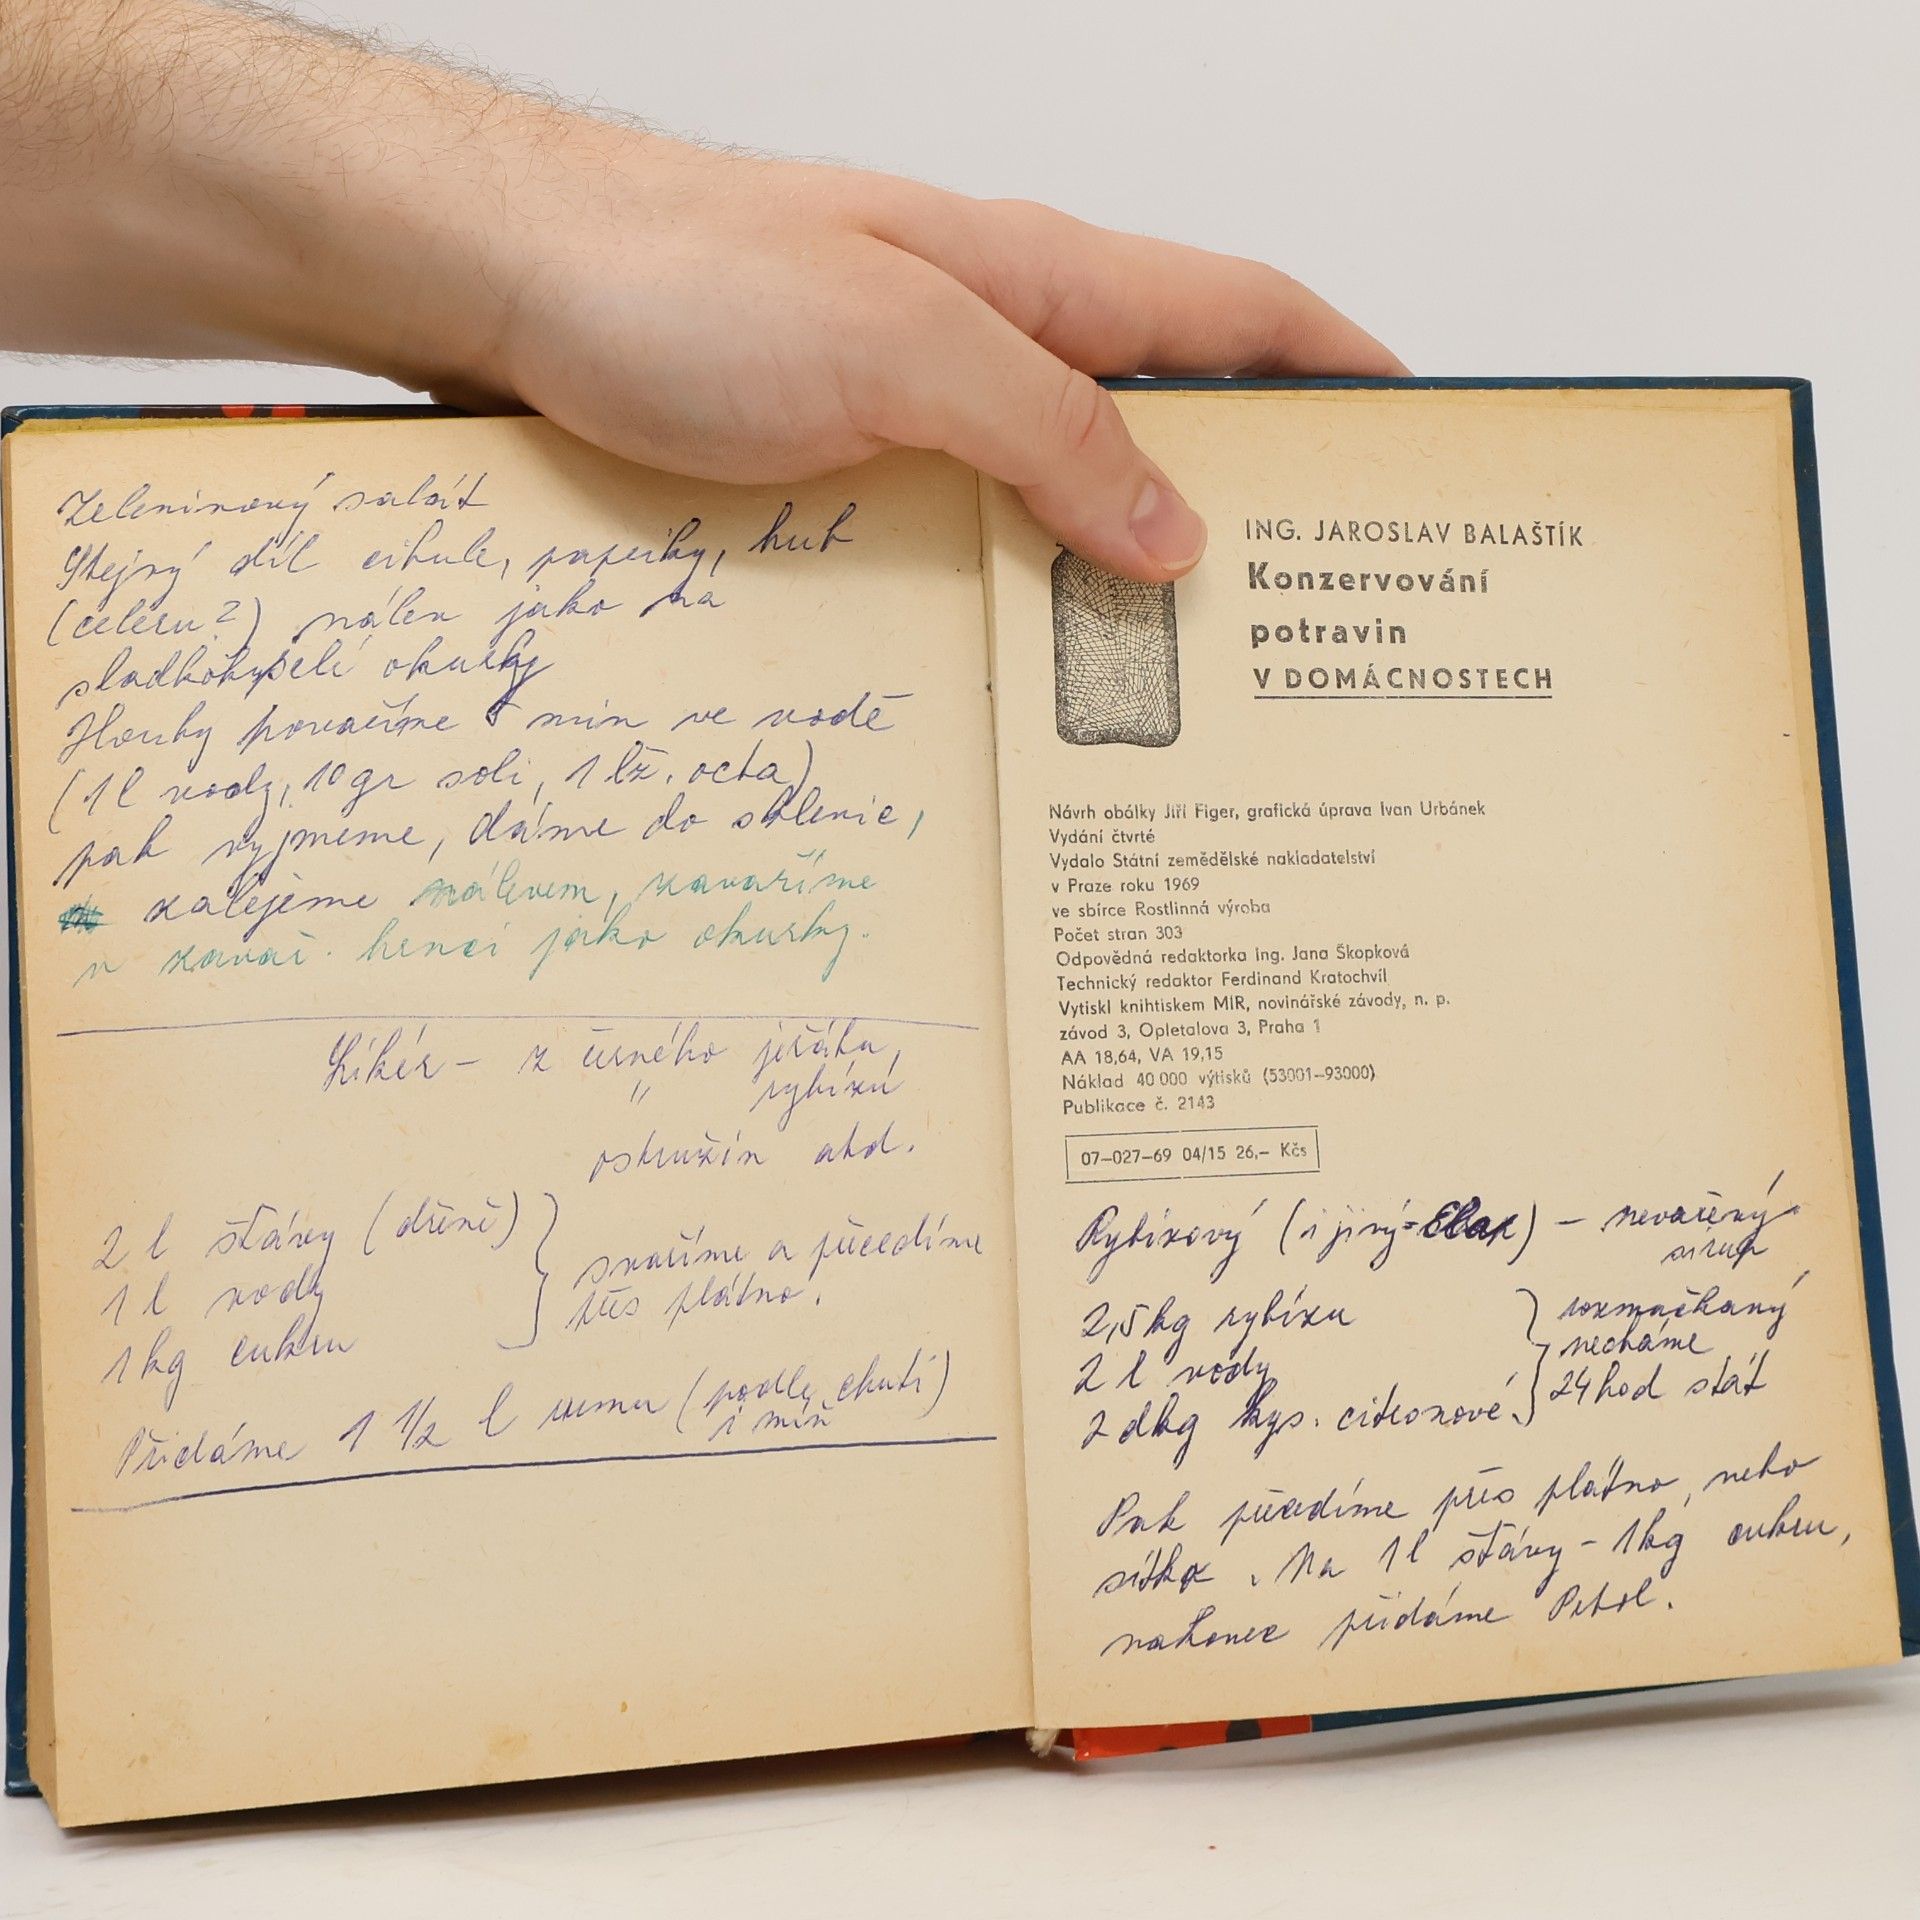 Zeleninový salát
Stejný díl cibule, papriky, hub
(celeru?) nálev jako na
sladkokyselé okurky
Houby povaříme 5 min ve vodě
(1 l vody, 10 gr soli, 1 lž. octa)
pak vyjmeme, dáme do sklenic,
zalejeme nálevem, zavaříme
v zavař. hrnci jako okurky.
Likér - z černého jeřábu,
" rybízu
ostružin atd.
2 l šťávy (dřeně)
1 l vody
1 kg cukru
svaříme a přecedíme
přes plátno.
Přidáme 1 1/2 l rumu (podle chuti)
i míň
ING. JAROSLAV BALAŠTÍK
Konzervování
potravin
V DOMÁCNOSTECH
Návrh obálky Jiří Figer, grafická úprava Ivan Urbánek
Vydání čtvrté
Vydalo Státní zemědělské nakladatelství
v Praze roku 1969
ve sbírce Rostlinná výroba
Počet stran 303
Odpovědná redaktorka ing. Jana Škopková
Technický redaktor Ferdinand Kratochvíl
Vytiskl knihtiskem MÍR, novinářské závody, n. p.
závod 3, Opletalova 3, Praha 1
AA 18,64, VA 19,15
Náklad 40 000 výtisků (53001–93000)
Publikace č. 2143
07–027–69 04/15 26,– Kčs
Rybízový (i jiný ) - nevařený
sirup
2,5 kg rybízu
2 l vody
2 dkg kys. citronové.
rozmačkaný
necháme
24 hod stát
Pak přecedíme přes plátno, nebo
sítko. Na 1 l šťávy - 1 kg cukru,
nakonec přidáme Petol.